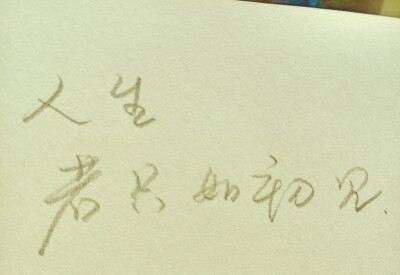 人生
若只如初见.